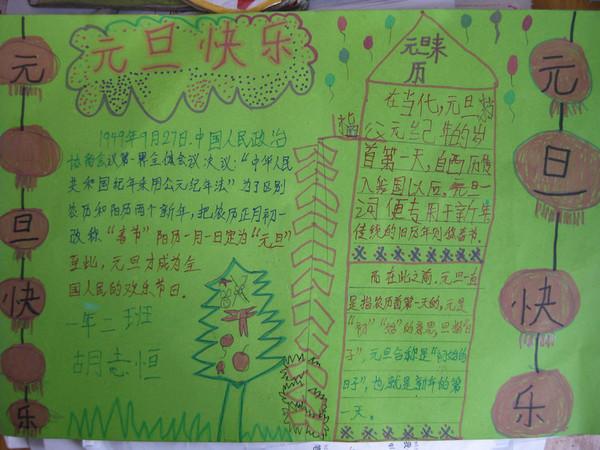 元旦快乐
元
旦
快
乐
1949年9月27日.中国人民政治
协商会议第一界全体会议决议:“中华人民
共和国纪年采用公元纪年法”为了区别
农历和阳历两个新年,把农历正月初一
改称“春节”阳历一月一日定为“元旦”
至此,元旦才成为全
国人民的欢乐节日。
一年二班
胡
恒
元旦来
历
在当代,元旦指
公元纪年的岁
首第一天,自西历传
入我国以后,元旦一
词便专用于新年
传统的旧历年则称春节.
而在此之前,元旦一直
是指农历首第一天的,元是
“初”“始”的意思,旦指“日
子”,元旦合称是“初始的
日子”,也就是新年的第
一天。
元
旦
快
乐